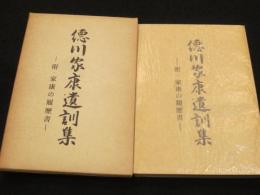 徳川家康遺訓集
―附 家康の履歴書―
徳川家康遺訓集
―附 家康の履歴書―